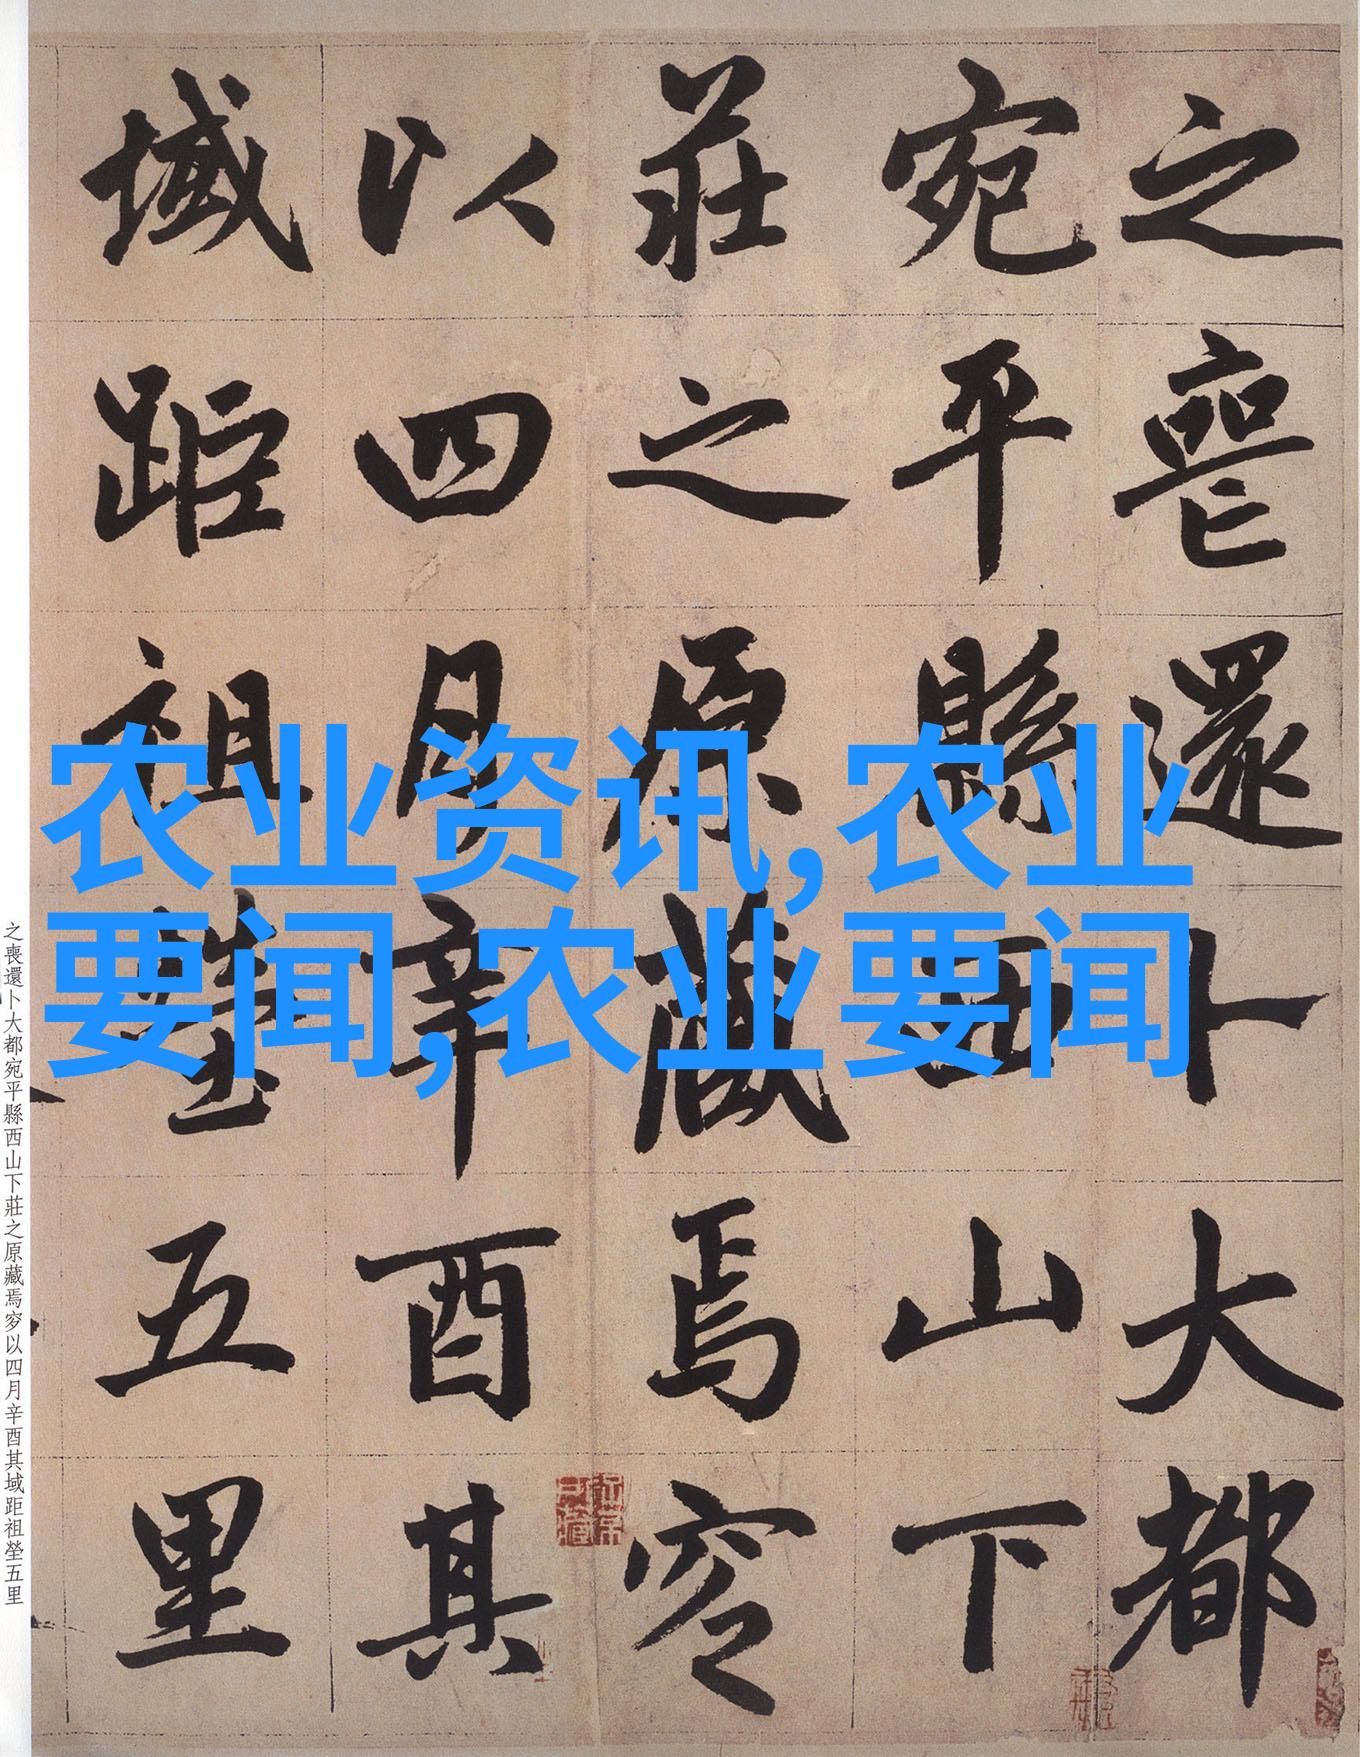 之喪還卜大都
宛平縣西山下
莊之原藏焉穸
以四月辛酉其
域距祖塋五里
农业资讯,农业
要闻,农业要闻
之喪還卜大都宛平縣西山下莊之原藏焉穸以四月辛酉其域距祖塋五里